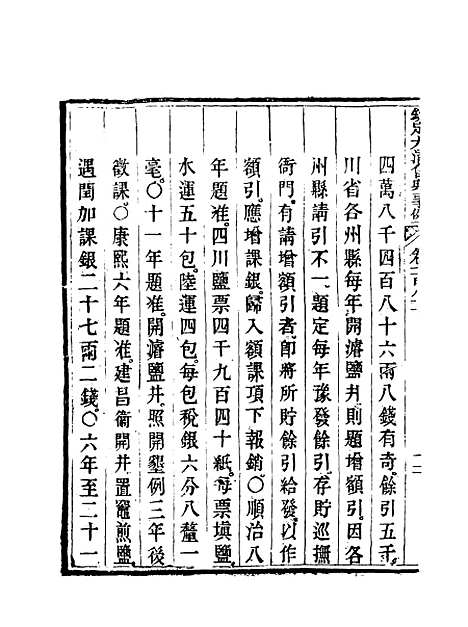 欽定大清會典事例 卷二百八十一
四萬八千四百八十六兩八錢有奇。餘引五千。
川省各州縣每年開濬鹽井則題增額引。因各
州縣請引不一。題定每年豫發餘引存貯巡撫
衙門。有請增額引者。即將所貯餘引給發。以作
額引。應增課銀。歸入額課項下報銷。○順治八
年題准。四川鹽票四千九百四十紙。每票填鹽。
水運五十包。陸運四包。每包稅銀六分八釐一
毫。○十一年題准。開濬鹽井。照開墾例三年後
徵課。○康熙六年題准。建昌衛開井置竈煎鹽。
遇閏加課銀二十七兩二錢。○六年至二十一